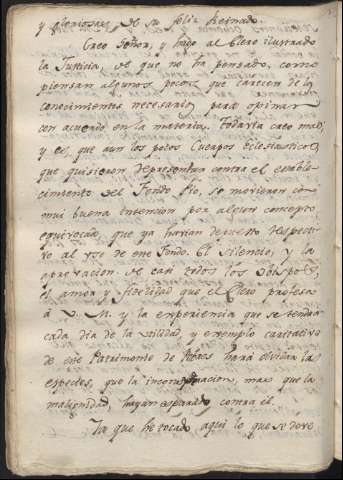 y gloriosas, de su feliz Reinado.
Creo Señor, y hago al Clero ilustrado
la Justicia, de que no ha pensado, como
piensan algunos pocos que carecen de los
conocimientos necesarios para opinar
con acuerdo en la materia. Todavia creo mas,
y es, que aun los pocos Cuerpos Eclesiasticos,
que quisieron representar contra el estable-
cimiento del Fondo Pio, se movieron con
mui buena intencion por algun concepto
equivocado, que ya havran depuesto respecti-
vo al uso de este Fondo. El silencio, y la
aprovacion de casi todos los Obispos,
el amor y fidelidad que el Clero profesa
à V. M. y la experiencia que se tendra
cada dia de la utilidad, y exemplo caritativo
de este Patrimonio de Pobres hará olvidar las
especies, que la mas que la
malignidad, hayan esparcido contra él.
Ya que he tocado aqui lo que se deve